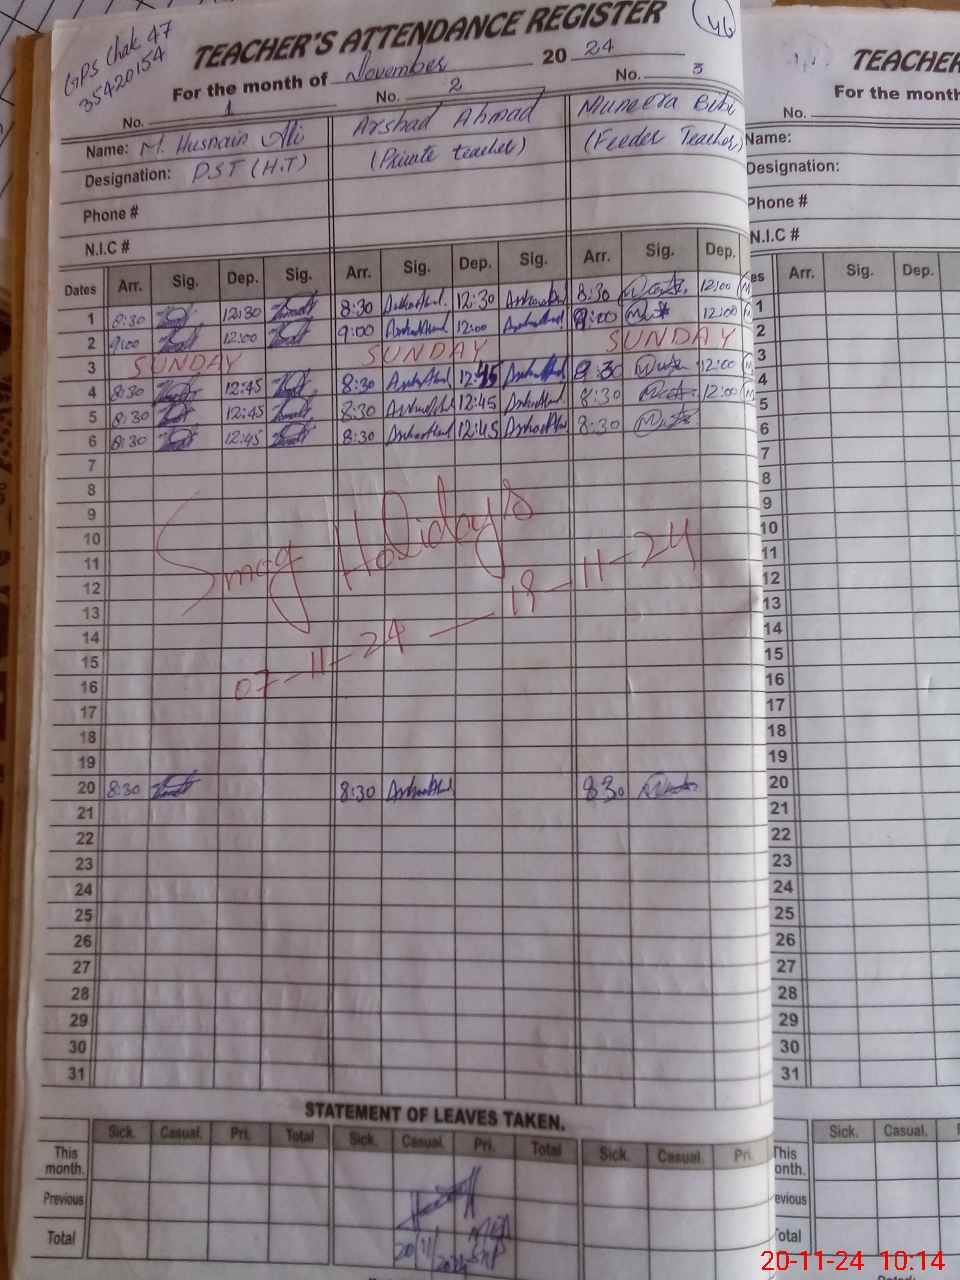 GPS Chak 47
35420154
46
TEACHER'S ATTENDANCE REGISTER
For the month of November 2024
No. 1 No. 2 No. 3
Name: M. Husnain Ali Arshad Ahmad Muneera Bibi
Designation: PST (H.T) (Private teacher) (Feeder Teacher)
Phone #
N.I.C #
Dates Arr. Sig. Dep. Sig. Arr. Sig. Dep. Sig. Arr. Sig. Dep.
1 8:30 12:30 8:30 12:30 8:30 12:00
2 9:00 12:00 9:00 12:00 9:00 12:00
3 SUNDAY SUNDAY SUNDAY
4 8:30 12:45 8:30 12:45 8:30 12:00
5 8:30 12:45 8:30 12:45 8:30 12:00
6 8:30 12:45 8:30 12:45 8:30
7
8
9
10
11
12
13
14
15
16
17
18
19
Smog Holidays
07-11-24 — 19-11-24
20 8:30 8:30 830
21
22
23
24
25
26
27
28
29
30
31
STATEMENT OF LEAVES TAKEN.
Sick. Casual. Pri. Total Sick. Casual. Pri. Total Sick. Casual Pri.
This month.
Previous
Total
20/11/2024
TEACHER
For the month
No.
Name:
Designation:
Phone #
N.I.C #
es Arr. Sig. Dep.
1
2
3
4
5
6
7
8
9
10
11
12
13
14
15
16
17
18
19
20
21
22
23
24
25
26
27
28
29
30
31
Sick. Casual.
This
onth.
evious
otal
20-11-24 10:14